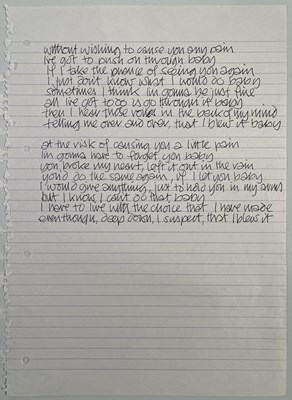 without wishing to cause you any pain
I've got to push on through baby
if I take the chance of seeing you again
I just don't know what I would do baby
sometimes I think I'm gonna be just fine
all I've got to do is go through it baby
then I hear those voices in the back of my mind
telling me over and over, that I blew it baby
at the risk of causing you a little pain
I'm gonna have to forget you baby
you broke my heart, left it out in the rain
you'd do the same again, if I let you baby
I would give anything, just to hold you in my arms
but I know I can't do that baby
I have to live with the choice that I have made
even though, deep down, I suspect, that I blew it